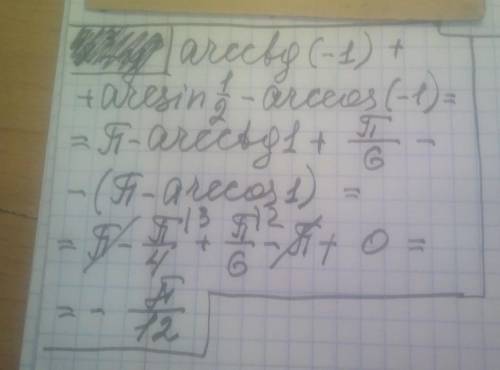 arcctg(-1) +
+ arcsin 1/2 - arccos(-1) =
= π - arcctg1 + π/6 -
- (π - arccos1) =
= π - π/4 |3 + π/6 |2 - π + 0 =
= - π/12